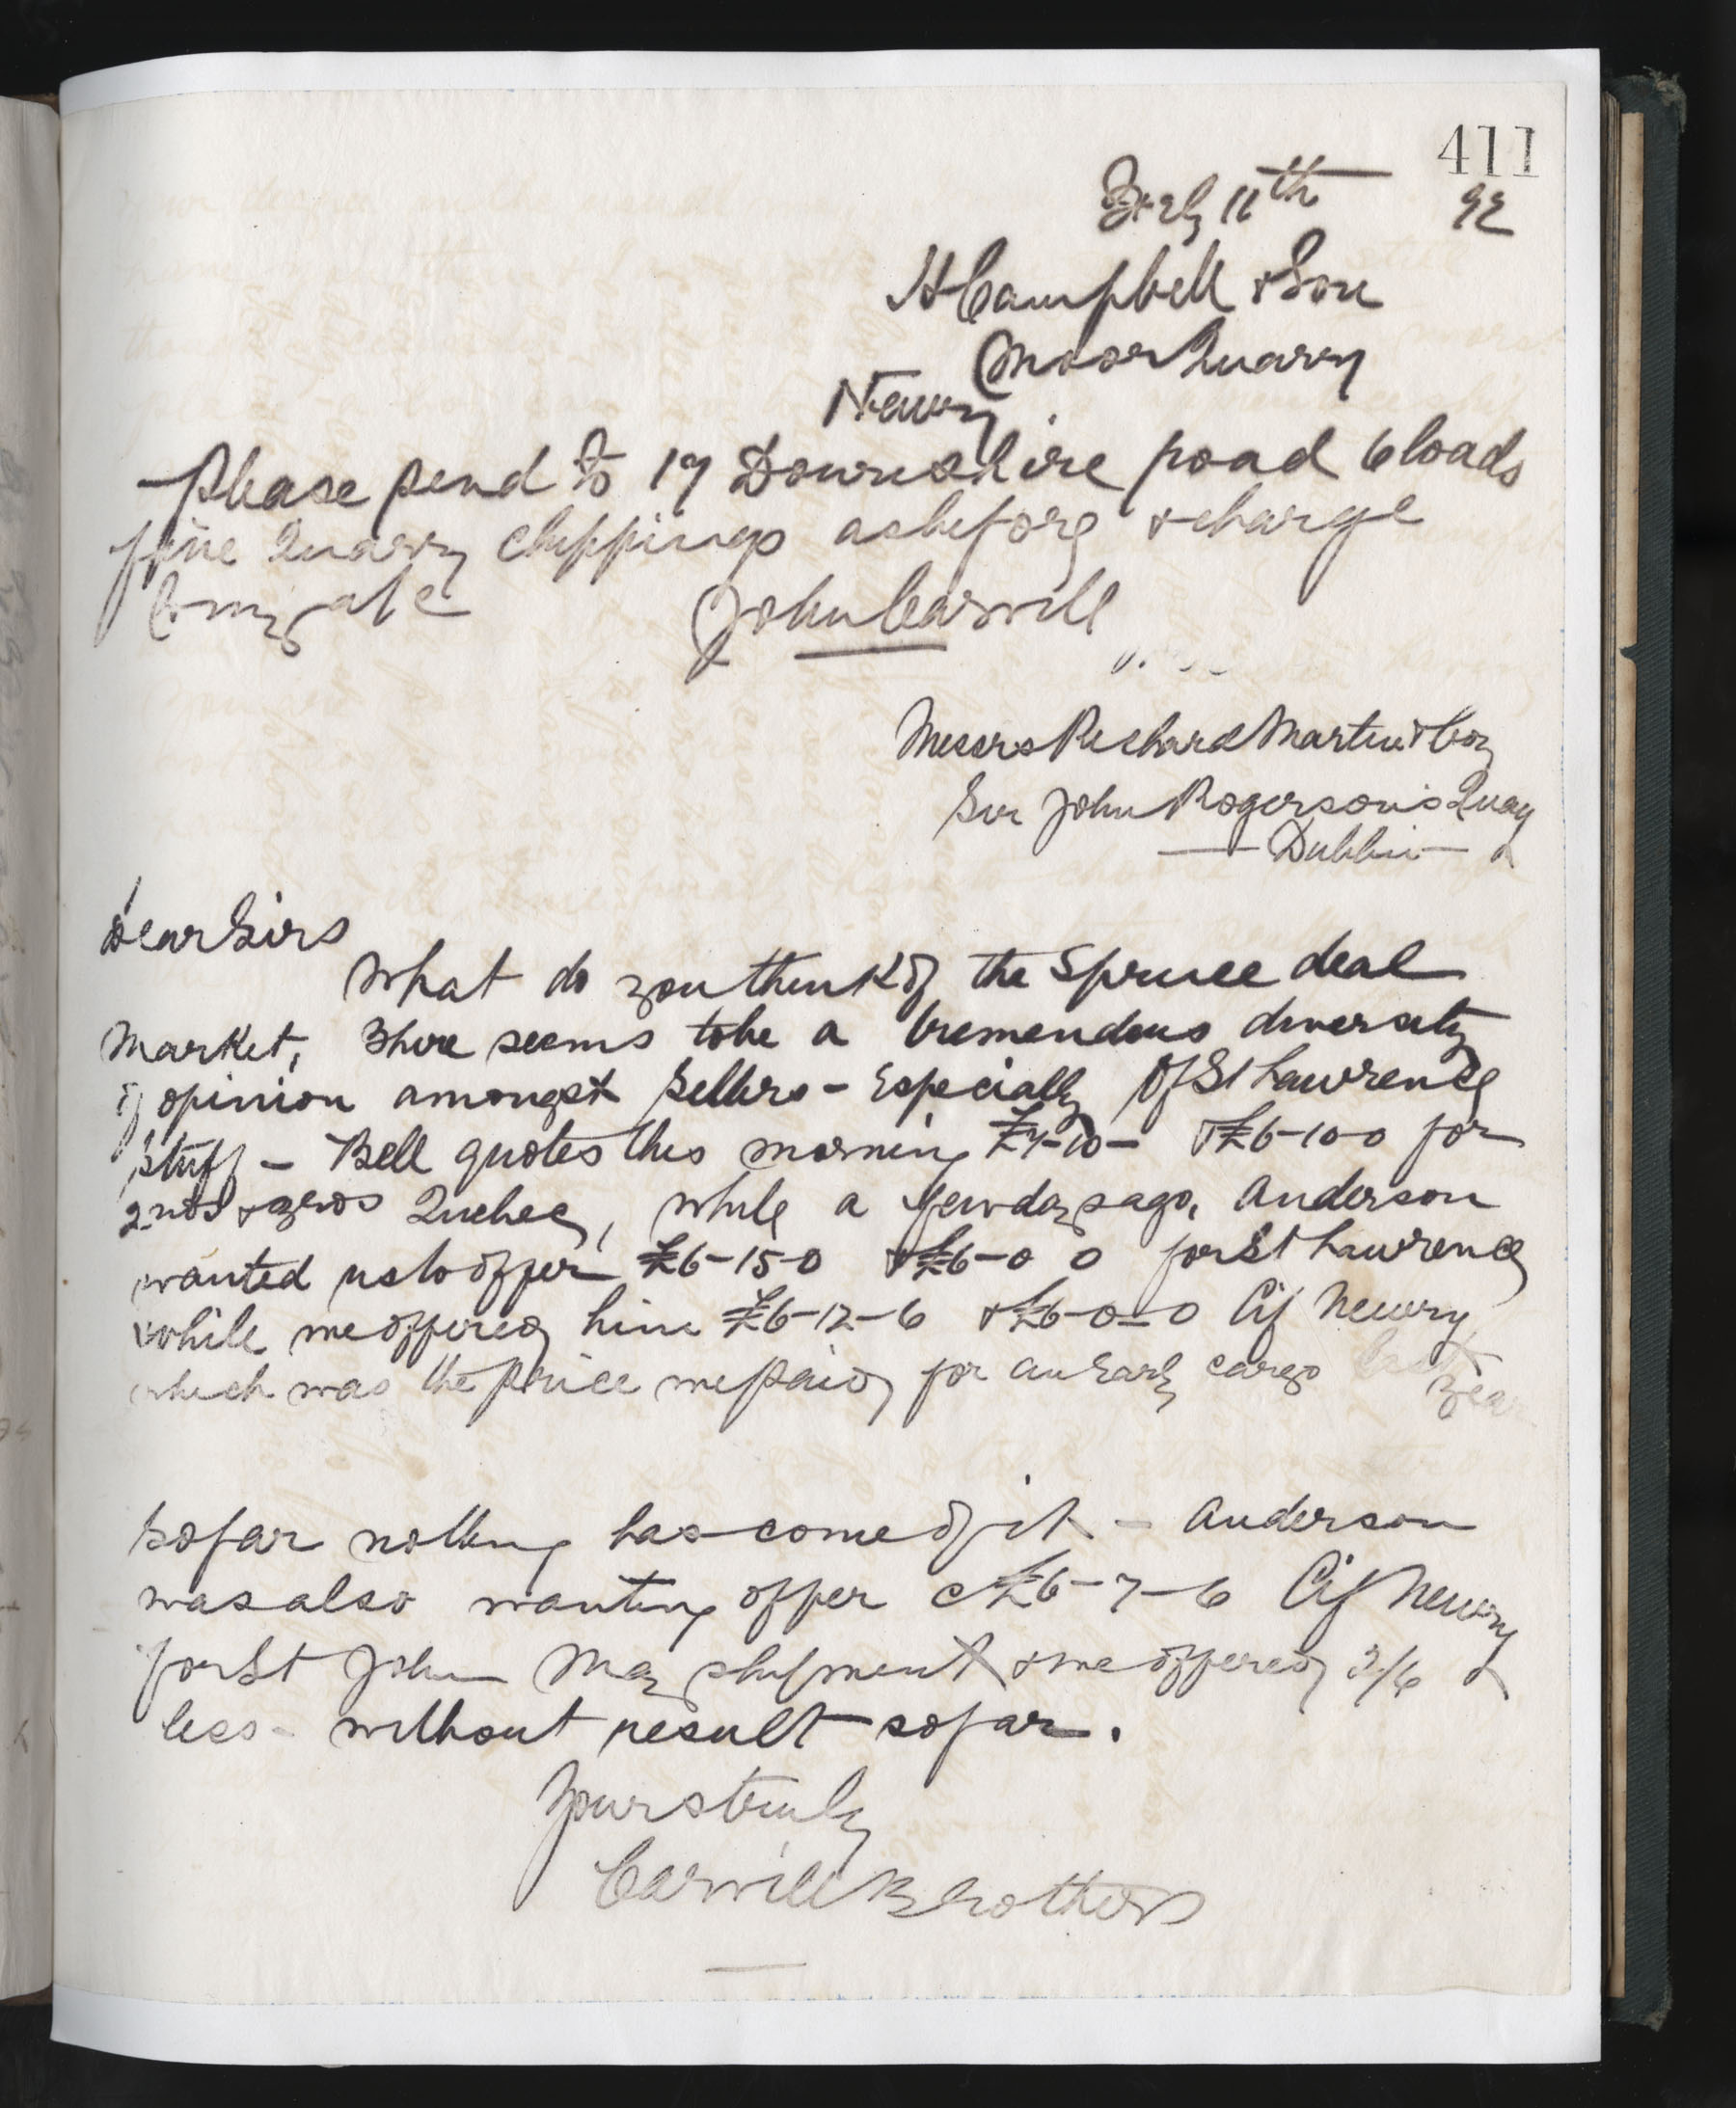 411
Feby 11th 92
H Campbell & Son
Moor Quarry
Newry
Please send to 17 Downshire road 6 loads
fine Quarry chippings as before & charge
to my a/c John Carvill
Messrs Richard Martin & Coy
Sir John Rogerson's Quay
Dublin
Dear Sirs
What do you think of the Spruce deal
Market, There seems to be a tremendous diversity
of opinion amongst Sellers - Especially of St Lawrence
Stuff - Bell quotes this morning £7-10- & £6-10-0 for
2nds & 3rds Quebec, while a few days ago, Anderson
wanted us to offer £6-15-0 & £6-0 0 for St Lawrence
while we offered him £6-12-6 & £6-0-0 Cif Newry
which was the price we paid for an Early cargo last
year
So far nothing has come of it - Anderson
was also wanting offer £6-7-6 Cif Newry
for St John May shipment & we offered 2/6
less - without result so far.
Yours truly
Carvill Brothers